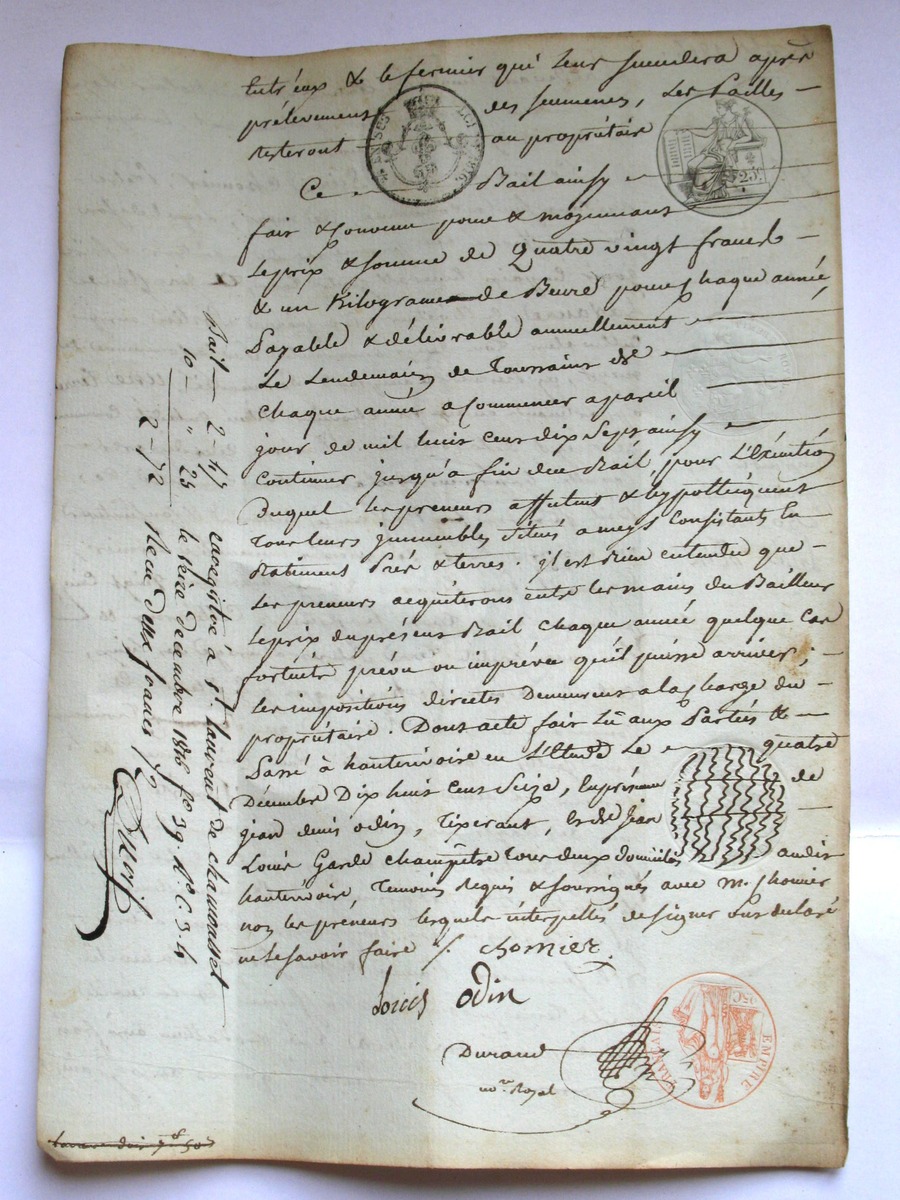 Entr'eux & le fermier qui leur succedera après
prélevement des semences, Les Pailles —
resteront au propriétaire
Ce Bail ainsy
fait & convenu pour & moyennant
Le prix & somme de Quatre vingt francs —
& un Kilograme de Beure pour chaque année
Payable & délivrable annuellement
Le Lendemain de Toussaint de
chaque année a Commencer a pareil
jour de mil huit cent dix Sept ainsy
Continuer jusqu'a fin du Bail, pour L'Exécution
Duquel les preneurs affectent & hypothequent
Tous leurs immeubles Situés a Consistants En
Batiment Prés & terres. il est Bien entendu que —
Les preneurs acquiteront entre les mains du Bailleur
Le prix du présent Bail chaque année quelque Cas
fortuit prévu ou imprévu qu'il puisse arriver ; —
Les impositions directes Demeurent a la charge du —
propriétaire. Dont acte fait Lû aux Parties & —
Passé à hauterivoire en L'Etude Le quatre
Décembre Dix huit Cent Seize, En présence de
jean denis odin, Tixerant, & de Jean —
Louis Garde champêtre Tous deux domiciliés audit
hauterivoire, Temoins Requis & soussignés avec m. chomier
non les preneurs lesquels interpellés de signer ont declaré
ne le savoir faire /. chomier
Louis odin
Durand
no.re Royal
EMPIRE
25 C
25
Bail — 2 - 47
10 — " 25
2 - 72
enregistré à St. Laurent de chamousset
le seize decembre 1816 fo 39 Ro C. 3. 4
Recu deux francs